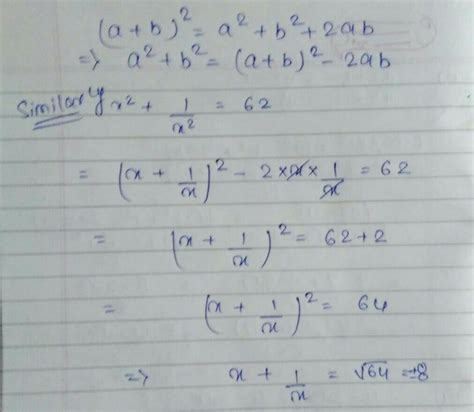 (a+b)² = a² + b² + 2ab
=> a² + b² = (a+b)² - 2ab
Similarly x² + 1/x² = 62
= (x + 1/x)² - 2 × x × 1/x = 62
= (x + 1/x)² = 62 + 2
= (x + 1/x)² = 64
=> x + 1/x = √64 = ±8